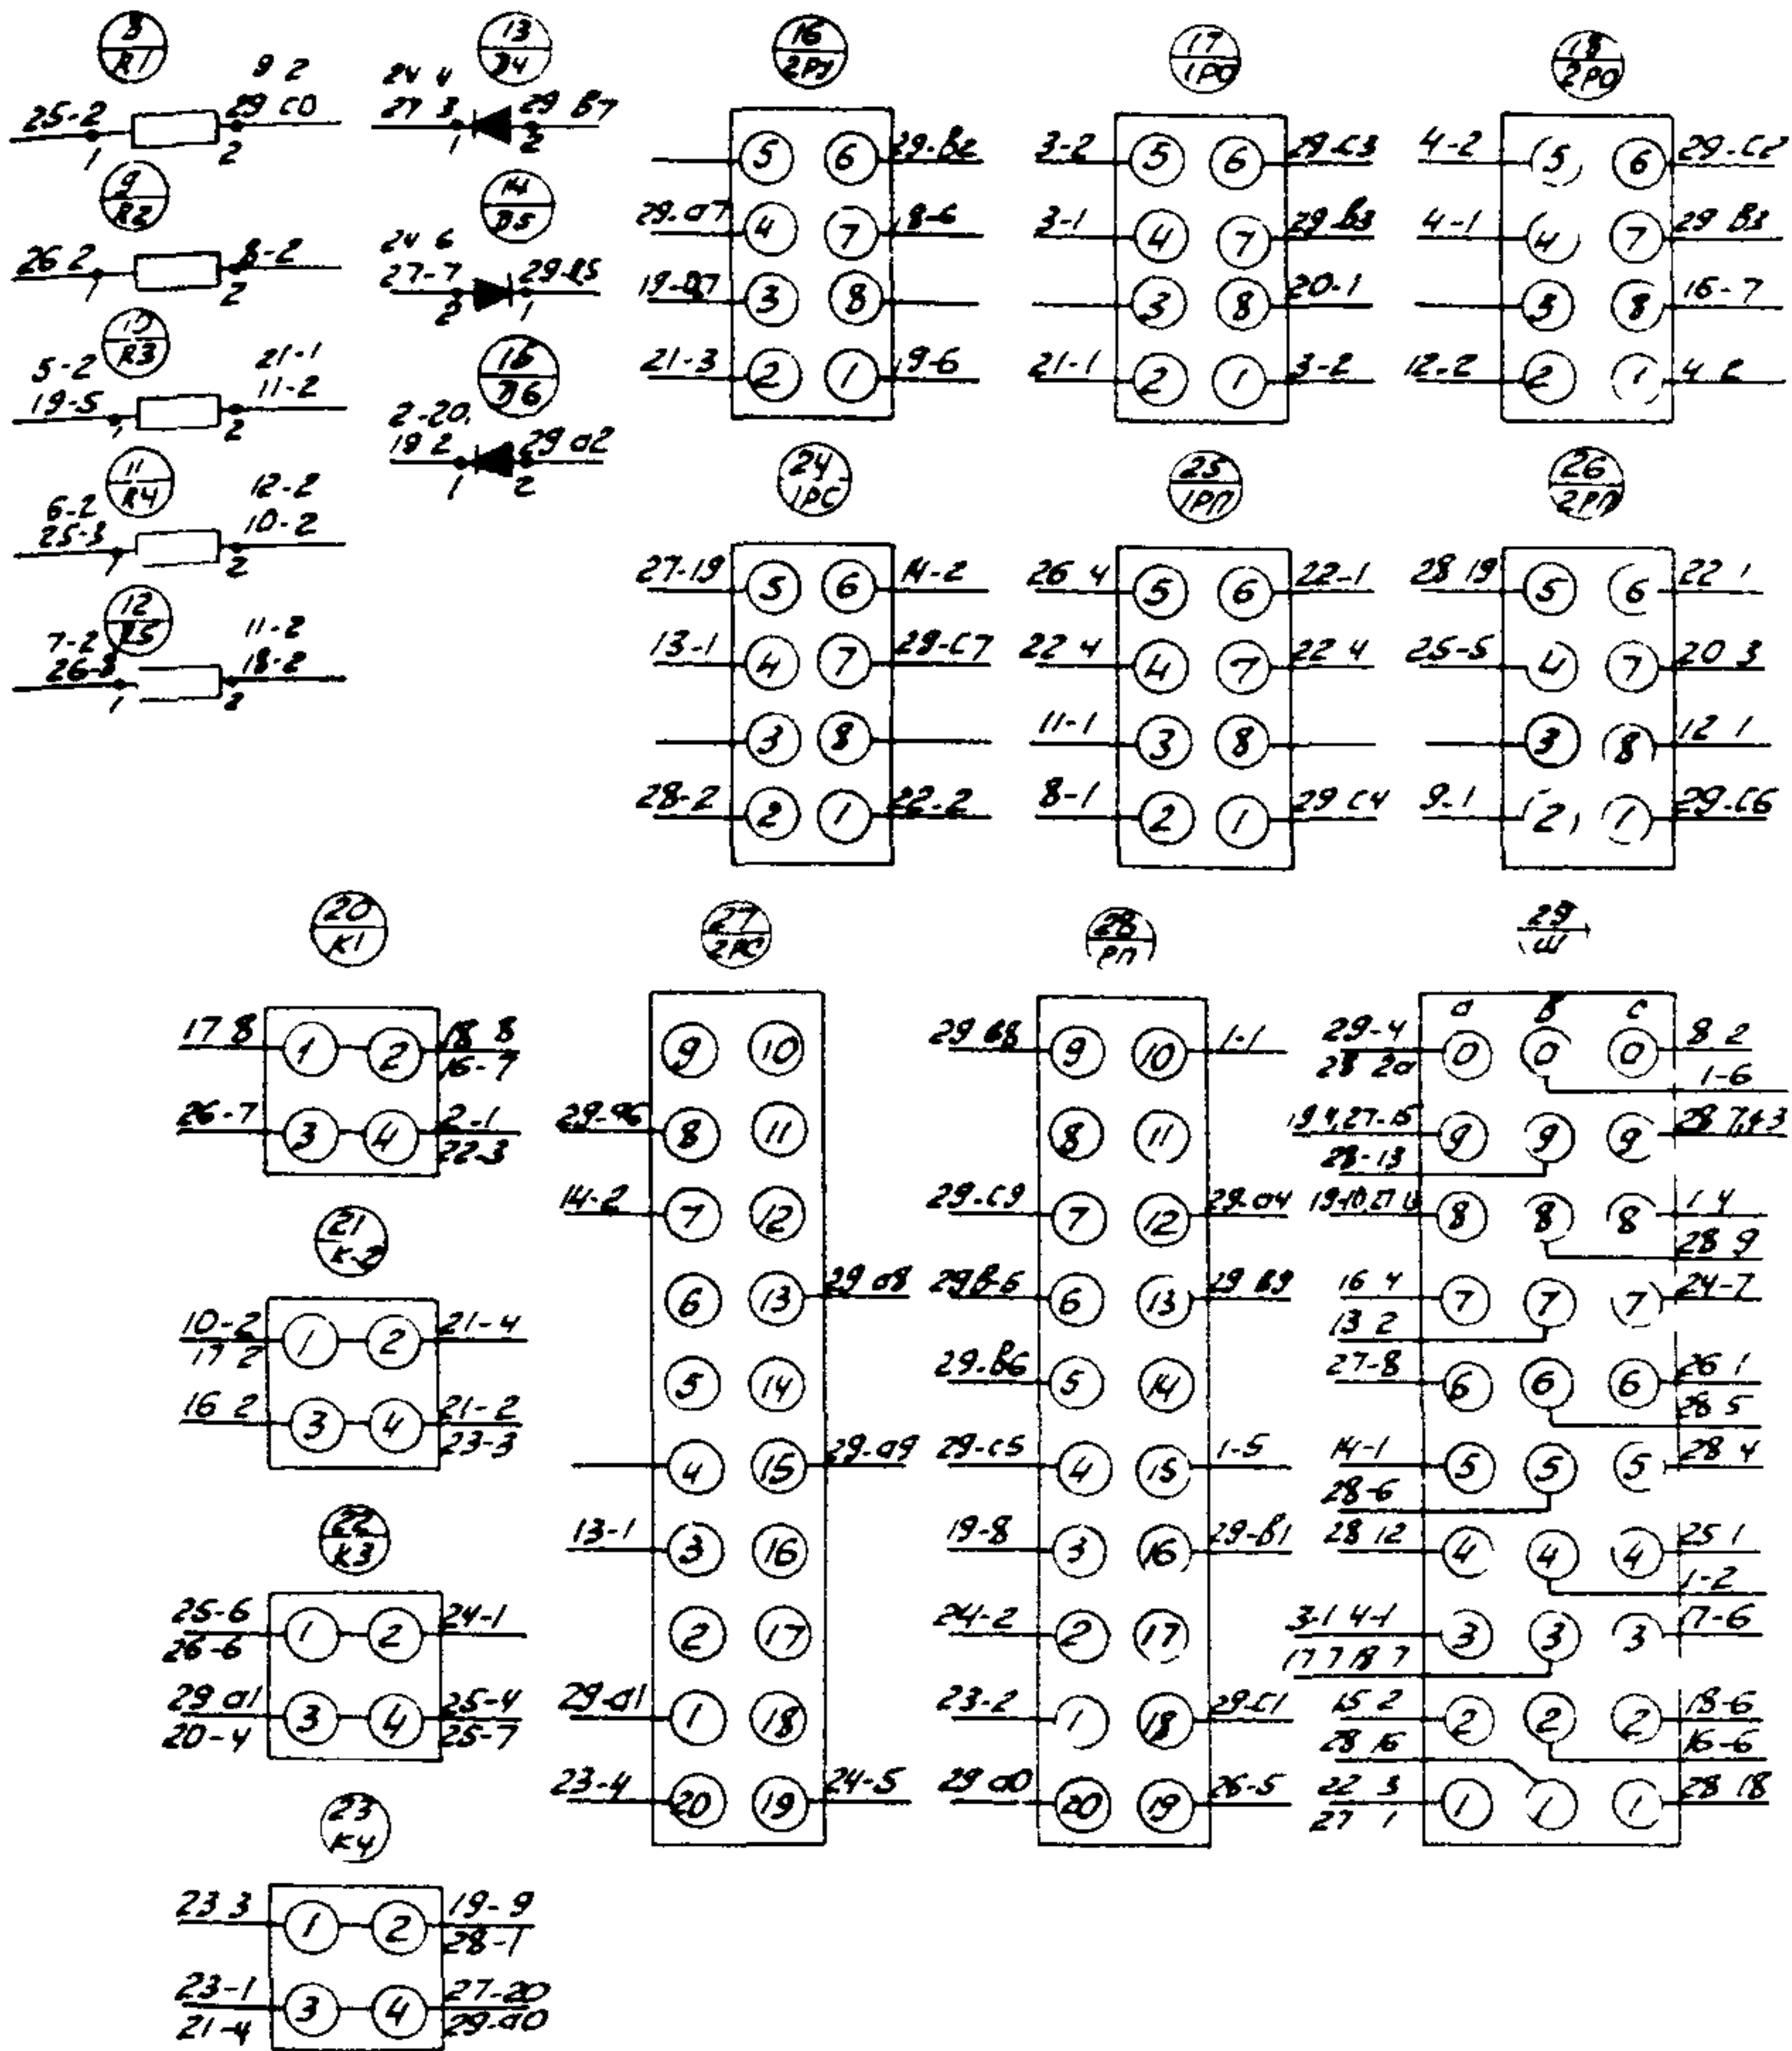 8
R1
25-2
9 2
29 C0
1
2
9
R2
26 2
8-2
1
2
10
R3
5-2
19-5
21-1
11-2
1
2
11
R4
6-2
25-3
12-2
10-2
1
2
12
R5
7-2
26-8
11-2
18-2
1
2
13
Д4
24 4
27 3
29 В7
1
2
14
Д5
24 6
27-7
2
1
15
Д6
2-20,
19 2
29 а2
1
2
16
2РУ
5 6 29-В2
29-а7 4 7 18-6
3 8
21-3 2 1 19-6
17
1РО
3-2 5 6 29-С3
3-1 4 7 29-В3
3 8 20-1
21-1 2 1 3-2
18
2РО
4-2 5 6 29-С2
4-1 4 7 29 В3
3 8 16-7
12-2 2 1 4 2
24
1РС
27-19 5 6 14-2
13-1 4 7 29-С7
3 8
28-2 2 1 22-2
25
1РП
26 4 5 6 22-1
22 4 4 7 22 4
11-1 3 8
8-1 2 1 29 С4
26
2РП
28 19 5 6 22 1
25-5 4 7 20 3
3 8 12 1
9-1 2 1 29-С6
20
К1
17 8 1 2 18 8
16-7
26-7 3 4 2-1
22-3
21
К-2
10-2 1 2 21-4
17 2
16 2 3 4 21-2
23-3
22
К3
25-6 1 2 24-1
26-6
29 а1 3 4 25-4
20-4 25-7
23
К4
23 3 1 2 19-9
28-1
23-1 3 4 27-20
21-4 29-а0
27
2РС
9 10
8 11
14-2 7 12
6 13 29 а8
5 14
4 15 29-а9
13-1 3 16
2 17
29-а1 1 18
23-4 20 19 24-5
28
РП
29 В8 9 10 1-1
8 11
29-С9 7 12 29-а4
29В-5 6 13 29 В9
29-В6 5 14
29-С5 4 15 1-5
19-8 3 16 29-В1
24-2 2 17
23-2 1 18 29-С1
29 а0 20 19 26-5
29
Ш
а В С
29-4 0 0 0 8 2
28 20 1-6
19 4,27-15 9 9 9 28 7,4-3
28-13
8 8 8 1-4
28 9
16 4 7 7 7 24-7
13 2
27-8 6 6 6 26 1
28 5
14-1 5 5 5 28 4
28-6
28 12 4 4 4 25 1
1-2
3-1 4-1 3 3 3 17-6
17 7 18 7
15 2 2 2 2 18-6
28 16 16-6
22 3 1 1 1 28 18
27 1